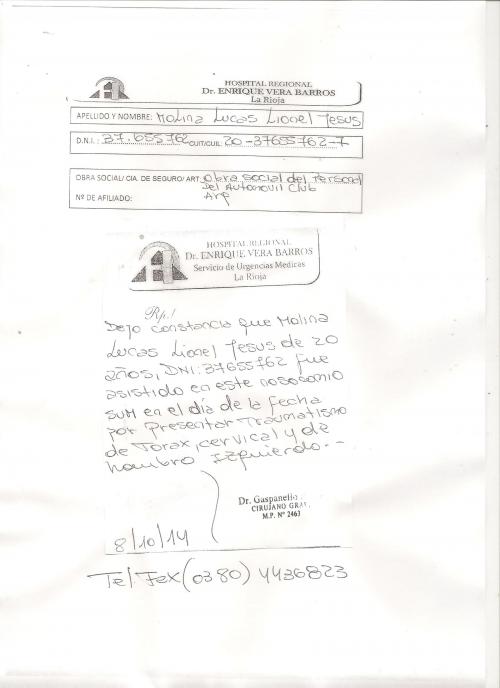 HOSPITAL REGIONAL
Dr. ENRIQUE VERA BARROS
La Rioja
APELLIDO Y NOMBRE: Molina Lucas Lionel Jesus
D.N.I.: 37.655762 CUIT/CUIL: 20-37655762-7
OBRA SOCIAL/ CIA. DE SEGURO/ ART: Obra social del Personal
Del Automovil Club
Nº DE AFILIADO: Arg
HOSPITAL REGIONAL
Dr. ENRIQUE VERA BARROS
Servicio de Urgencias Medicas
La Rioja
Rp./
Dejo constancia que Molina
Lucas Lionel Jesus de 20
años, DNI: 37655762 fue
asistido en este nosocomio
SUM en el día de la fecha
por presentar Traumatismo
de Torax, cervical y de
hombro Izquierdo.--
Dr. Gaspanello
CIRUJANO GRAL.
M.P. Nº 2463
8/10/14
Tel Fex (0380) 4436823